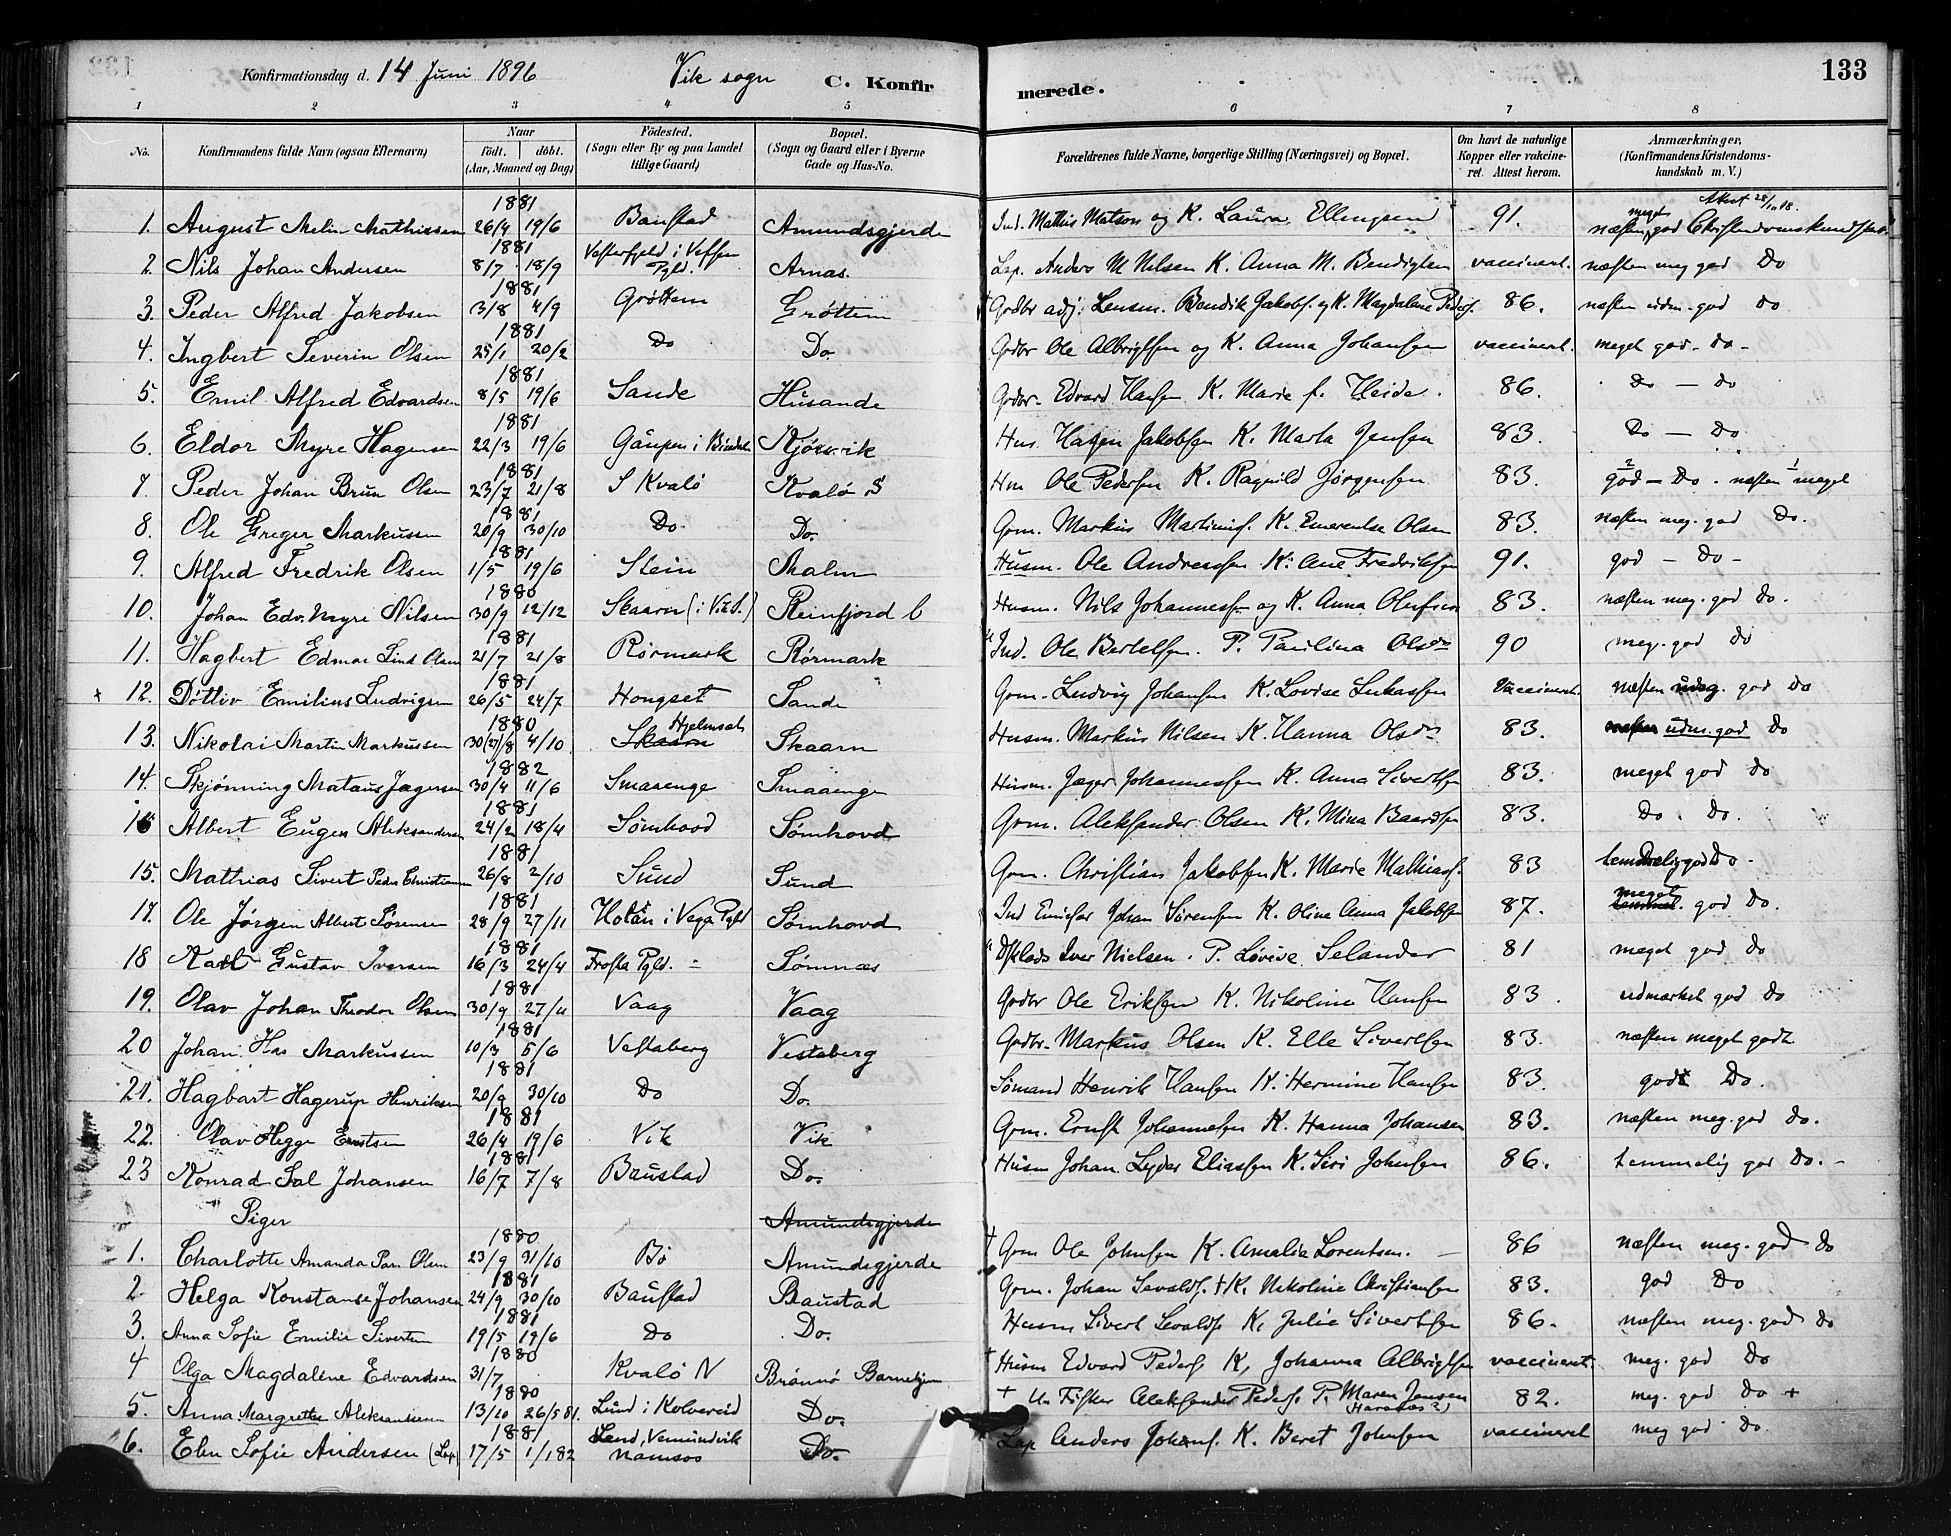 Konfirmationsdag d. 14 Juni 1896 Vik sogn C. Konfirmerede. 133
1 2 3 4 5 6 7 8
No. Konfirmandens fulde Navn (ogsaa Efternavn) Naar födt. döbt. (Aar, Maaned og Dag) Födested. (Sogn eller By og paa Landet tillige Gaard) Bopæl. (Sogn og Gaard eller i Byerne Gade og Hus-No. Forældrenes fulde Navne, borgerlige Stilling (Næringsvei) og Bopæl. Om havt de naturlige Kopper eller vaccineret. Attest herom. Anmærkninger. (Konfirmandens Kristendomskundskab m. V.)
1. August Melin Mathissen 1881 26/4 19/6 Baustad Amundsgjerde Ind. Mattis Matson og K. Laura Ellingsen 91. næsten meget god Christendomskundskab
2. Nils Johan Andersen 1881 8/7 18/9 Vesterfjeld i Vefsen Pgld. Arnas. Lap. Anders M Nilsen K. Anna M. Bendigtsen vaccineret. næsten meg god Do
3. Peder Alfred Jakobsen 1881 3/8 4/9 Grøttem Grøttem Gdbr adj. Lensm. Bendik Jakobs. og K. Magdalene Peders. 86. næsten udm. god Do
4. Ingbert Severin Olsen 1881 25/1 20/2 Do Do. Gdbr Ole Albrigtsen og K. Anna Johansen vaccineret. meget god - Do -
5. Emil Alfred Edvardsen 1881 8/5 19/6 Sande Husande Gdbr. Edvard Hansen K. Marie f. Heide. 86. Do - Do
6. Eldor Myre Hagensen 1881 22/3 19/6 Gaupen i Bindalen Kjørsvik Hus. Hagen Jakobsen K. Marta Jensen 83. Do - Do
7. Peder Johan Brun Olsen 1881 23/7 21/8 S Kvalø Kvalø S Hm Ole Pedersen K. Ragnild Jørgensen 83. god - Do. næsten meget
8. Ole Greger Markussen 1881 20/9 30/10 Do Do. Grm. Markus Martinus. K. Emerentse Olsen 83. næsten meg. god Do.
9. Alfred Fredrik Olsen 1881 1/5 19/6 Stein Malm Husm. Ole Andreassen K. Ane Fredriksen 91. god - Do -
10. Johan Edv. Myre Nilsen 1880 30/9 12/12 Skaarn (i Vik S.) Reinfjord Husm. Nils Johannessen og K. Anna Olufsen 83. næsten meg. god Do.
11. Hagbert Edmar Lind Olsen 1881 21/7 21/8 Rørmark Rørmark Ind. Ole Bertelsen. P. Paulina Olsdr 90 meg. god Do
+ 12. Døtlov Emilius Ludvigsen 1881 26/5 24/7 Hongset Sande Grm. Ludvig Johansen K. Lovise Lukassen Vaccineret næsten udm. god Do
13. Nikolai Martin Markussen 1880 30(27)/8 4/10 Skaarn Hjelmset Skaarn Husm. Markus Nilsen K. Hanna Olsdr 83. næsten udm. god Do
14. Skjønning Mataus Jægersen 1882 30/4 11/6 Smaaenge Smaaenge Husm. Jæger Johannessen K. Anna Sivertsen 83. meget god Do
16 Albert Eugen Aleksandersen 1881 24/2 18/4 Sømhovd Sømhovd Grm. Aleksander Olsen K. Mina Baardsen 83. Do. Do.
15. Mathias Sivert Peder Christiansen 1881 26/8 2/10 Sund Sund Grm. Christian Jakobsen K. Marie Mathiass. 83 temmelig god Do.
17. Ole Jørgen Albert Sørensen 1881 28/9 27/11 Holan i Vega Pgld Sømhovd Ind Enicher Johan Sørensen K. Oline Anna Jakobsen 87. meget god Do.
18 Karl Gustav Iversen 1881 16/3 24/4 Frosta Pgld. Sømnæs Dsklads Iver Nielsen. P. Lovise Selander 81 meget god Do
19. Olav Johan Theodor Olsen 1881 30/9 27/11 Vaag Vaag Gdbr Ole Eriksen K. Nikoline Hansen 83. udmærket god Do
20 Johan Has Markussen 1881 10/3 5/6 Vestaberg Vestaberg Gdbr. Markus Olsen K. Elle Sivertsen 83. næsten meget godt
21. Hagbart Hagerup Henriksen 1881 20/9 30/10 Do Do. Sømand Henrik Hansen K. Hermine Hansen 83. god Do.
22. Olav Hegge Ernstsen 1881 26/4 19/6 Vik Vik Grm. Ernst Johannesen K. Hanna Johansen 83. næsten meg. god Do.
23 Konrad Sal Johansen 1881 16/7 7/8 Baustad Do. Husm Johan Lyder Eliassen K. Siri Johnsen 86. temmelig god Do. -
Piger Amundsgjerde
1. Charlotte Amanda Olsen 1880 23/9 31/10 Bø Amundsgjerde † Grm Ole Johnsen K. Amalie Lorentsen. 86 næsten meg. god Do
2. Helga Konstanse Johansen 1881 24/9 30/10 Baustad Baustad Grm. Johan Sevalds. † K. Nikoline Christiansen 83. god Do
3. Anna Sofie Emilie Sivertsen 1881 19/5 19/6 Do Do. Husm Sivert Sevalds. K. Julie Sivertsen 86. næsten meg. god Do
4 Olga Magdalene Edvardsen 1880 31/7 Kvalø N Brønnø Barnehjem † Husm Edvard Peders. K. Johanna Albrigtsen vaccineret meg. god Do
5. Anna Margrethe Aleksandersen 1880 13/10 26/5 81. Lund i Kolvereid Do. + U. Fisker Aleksander Peders. P. Maren Jensen 82. meg. god Do +
6. Elen Sofie Andersen (Lap) 1881 17/5 1/1 82 Vemundvik Namsos Do. Lap Anders Johans. K. Beret Johnsen vaccineret meg god Do